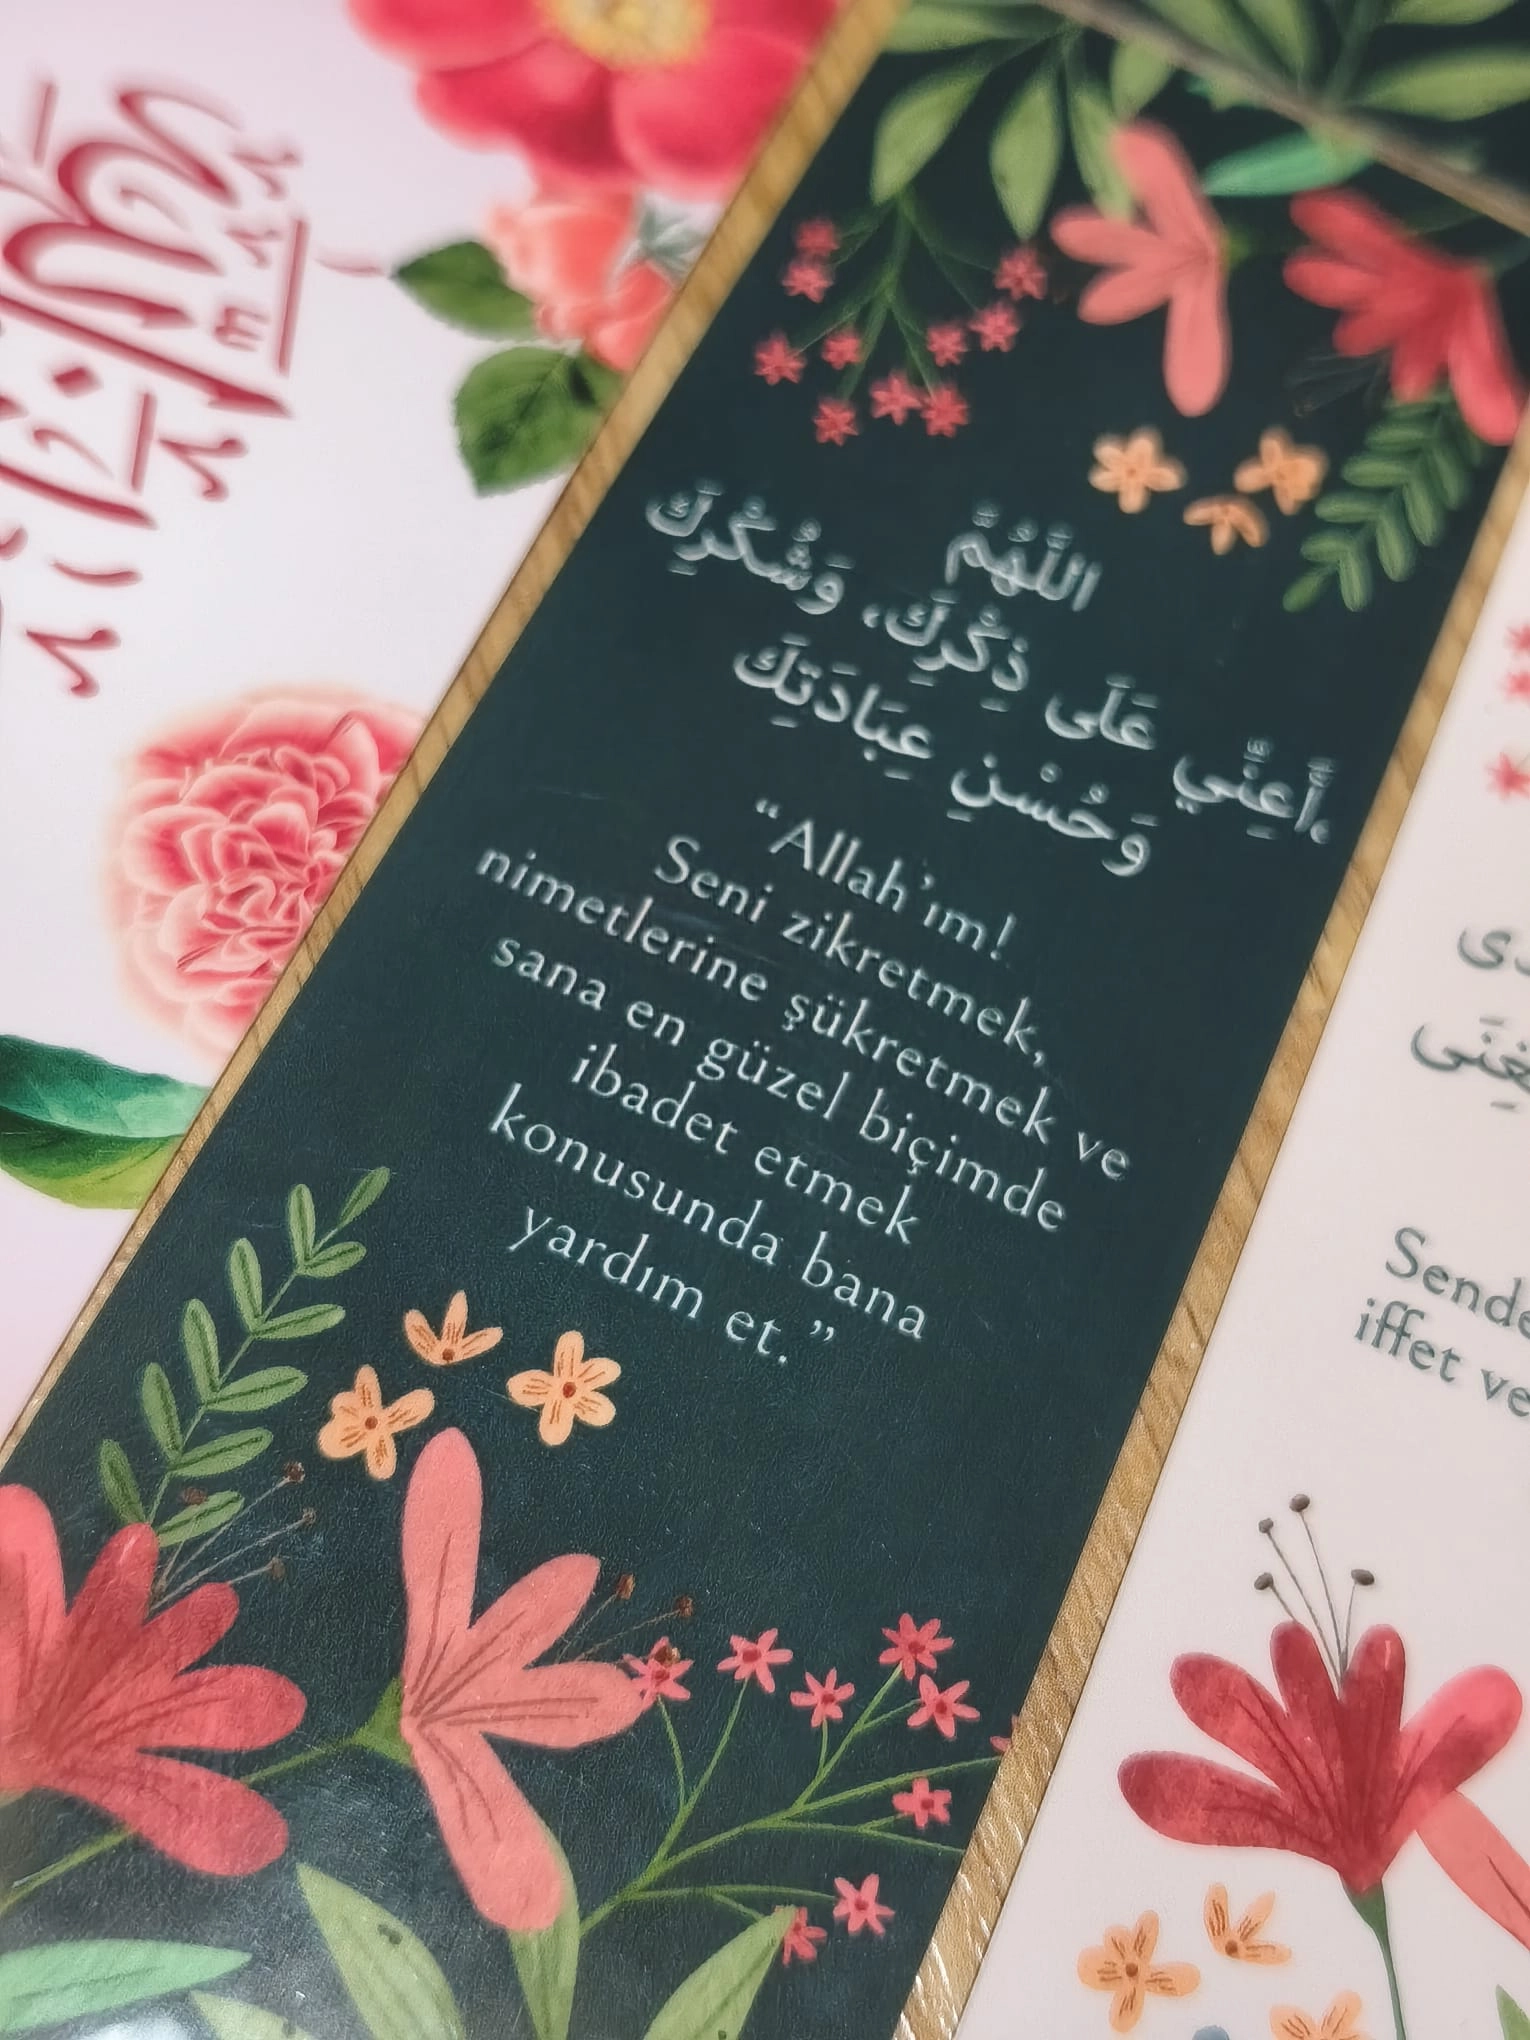 اللَّهُمَّ
أَعِنِّي عَلَى ذِكْرِكَ، وَشُكْرِكَ،
وَحُسْنِ عِبَادَتِكَ
“Allah’ım!
Seni zikretmek,
nimetlerine şükretmek ve
sana en güzel biçimde
ibadet etmek
konusunda bana
yardım et.”
iffet ve